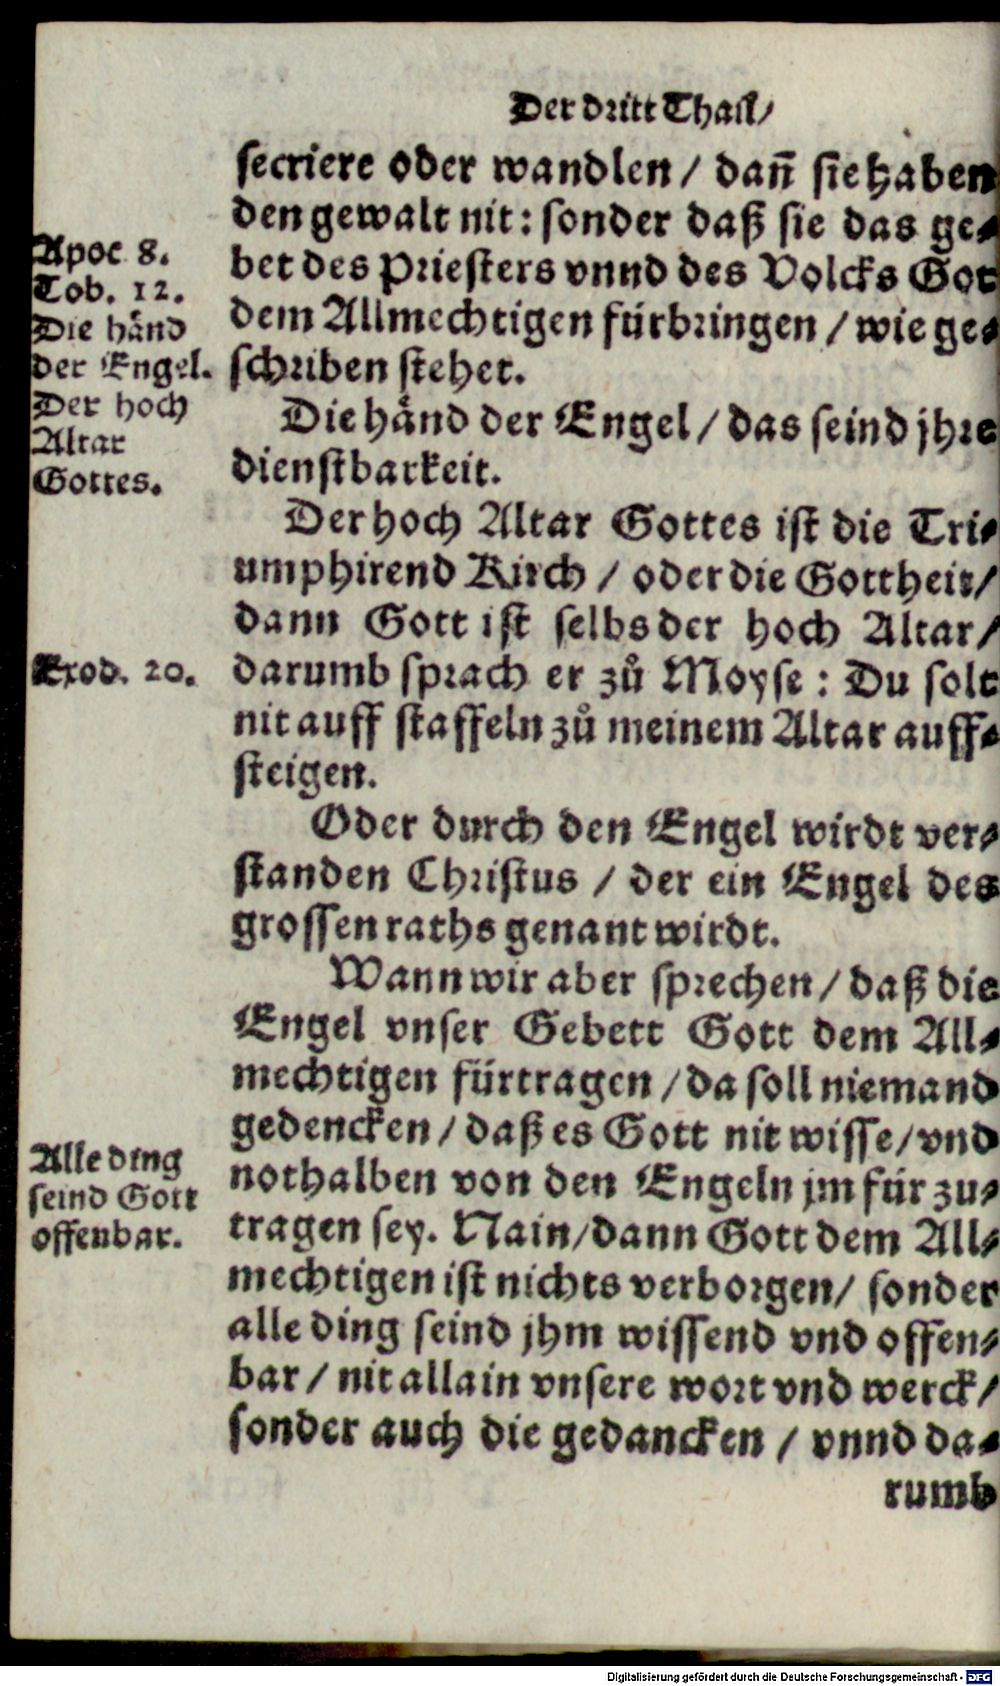 Der dritt Thail/
secriere oder wandlen / dañ sie haben
den gewalt nit: sonder daß sie das ge-
bet des Priesters vnnd des Volcks Got
dem Allmechtigen fürbringen / wie ge-
schriben stehet.
Apoc 8.
Tob. 12.
Die händ
der Engel.
Der hoch
Altar
Gottes.
Die hånd der Engel / das seind jhre
dienstbarkeit.
Der hoch Altar Gottes ist die Tri-
umphirend Kirch / oder die Gottheit/
dann Gott ist selbs der hoch Altar/
Exod. 20.
darumb sprach er zů Moyse : Du solt
nit auff staffeln zů meinem Altar auff-
steigen.
Oder durch den Engel wirdt ver-
standen Christus / der ein Engel des
grossen raths genant wirdt.
Wann wir aber sprechen / daß die
Engel vnser Gebett Gott dem All-
mechtigen fürtragen / da soll niemand
gedencken / daß es Gott nit wisse / vnd
nothalben von den Engeln jm für zu-
tragen sey. Nain/dann Gott dem All-
Alle ding
seind Gott
offenbar.
mechtigen ist nichts verborgen/ sonder
alle ding seind jhm wissend vnd offen-
bar / nit allain vnsere wort vnd werck/
sonder auch die gedancken / vnnd da-
rumb
Digitalisierung gefördert durch die Deutsche Forschungsgemeinschaft - DFG